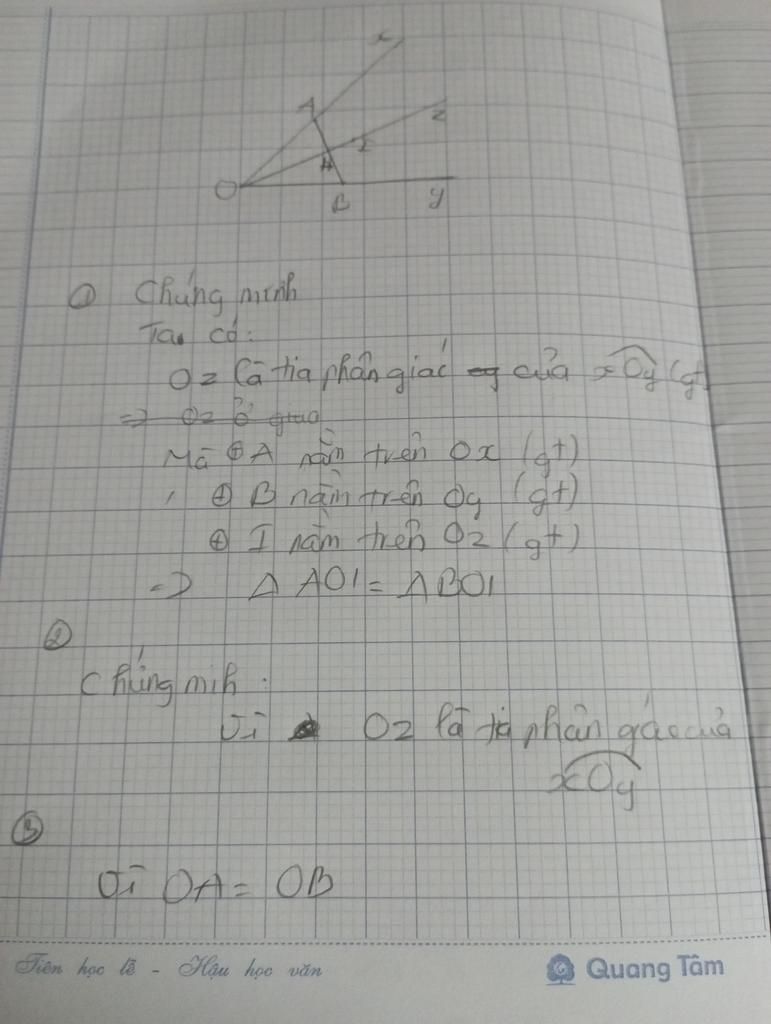 x
A
z
I
H
O
B
y
① Chứng minh
Ta có:
Oz là tia phân giác của xOy (gt)
=> Oz ở giua
Mà ⊕ A nằm trên Ox (gt)
, ⊕ B nằm trên Oy (gt)
⊕ I nằm trên Oz (gt)
=> Δ AOI = ΔBOI
②
Chứng mih :
Vì Oz là tia phân giác của
xOy
③
Vì OA = OB
Tiên học lễ - Hậu học văn
Quang Tâm